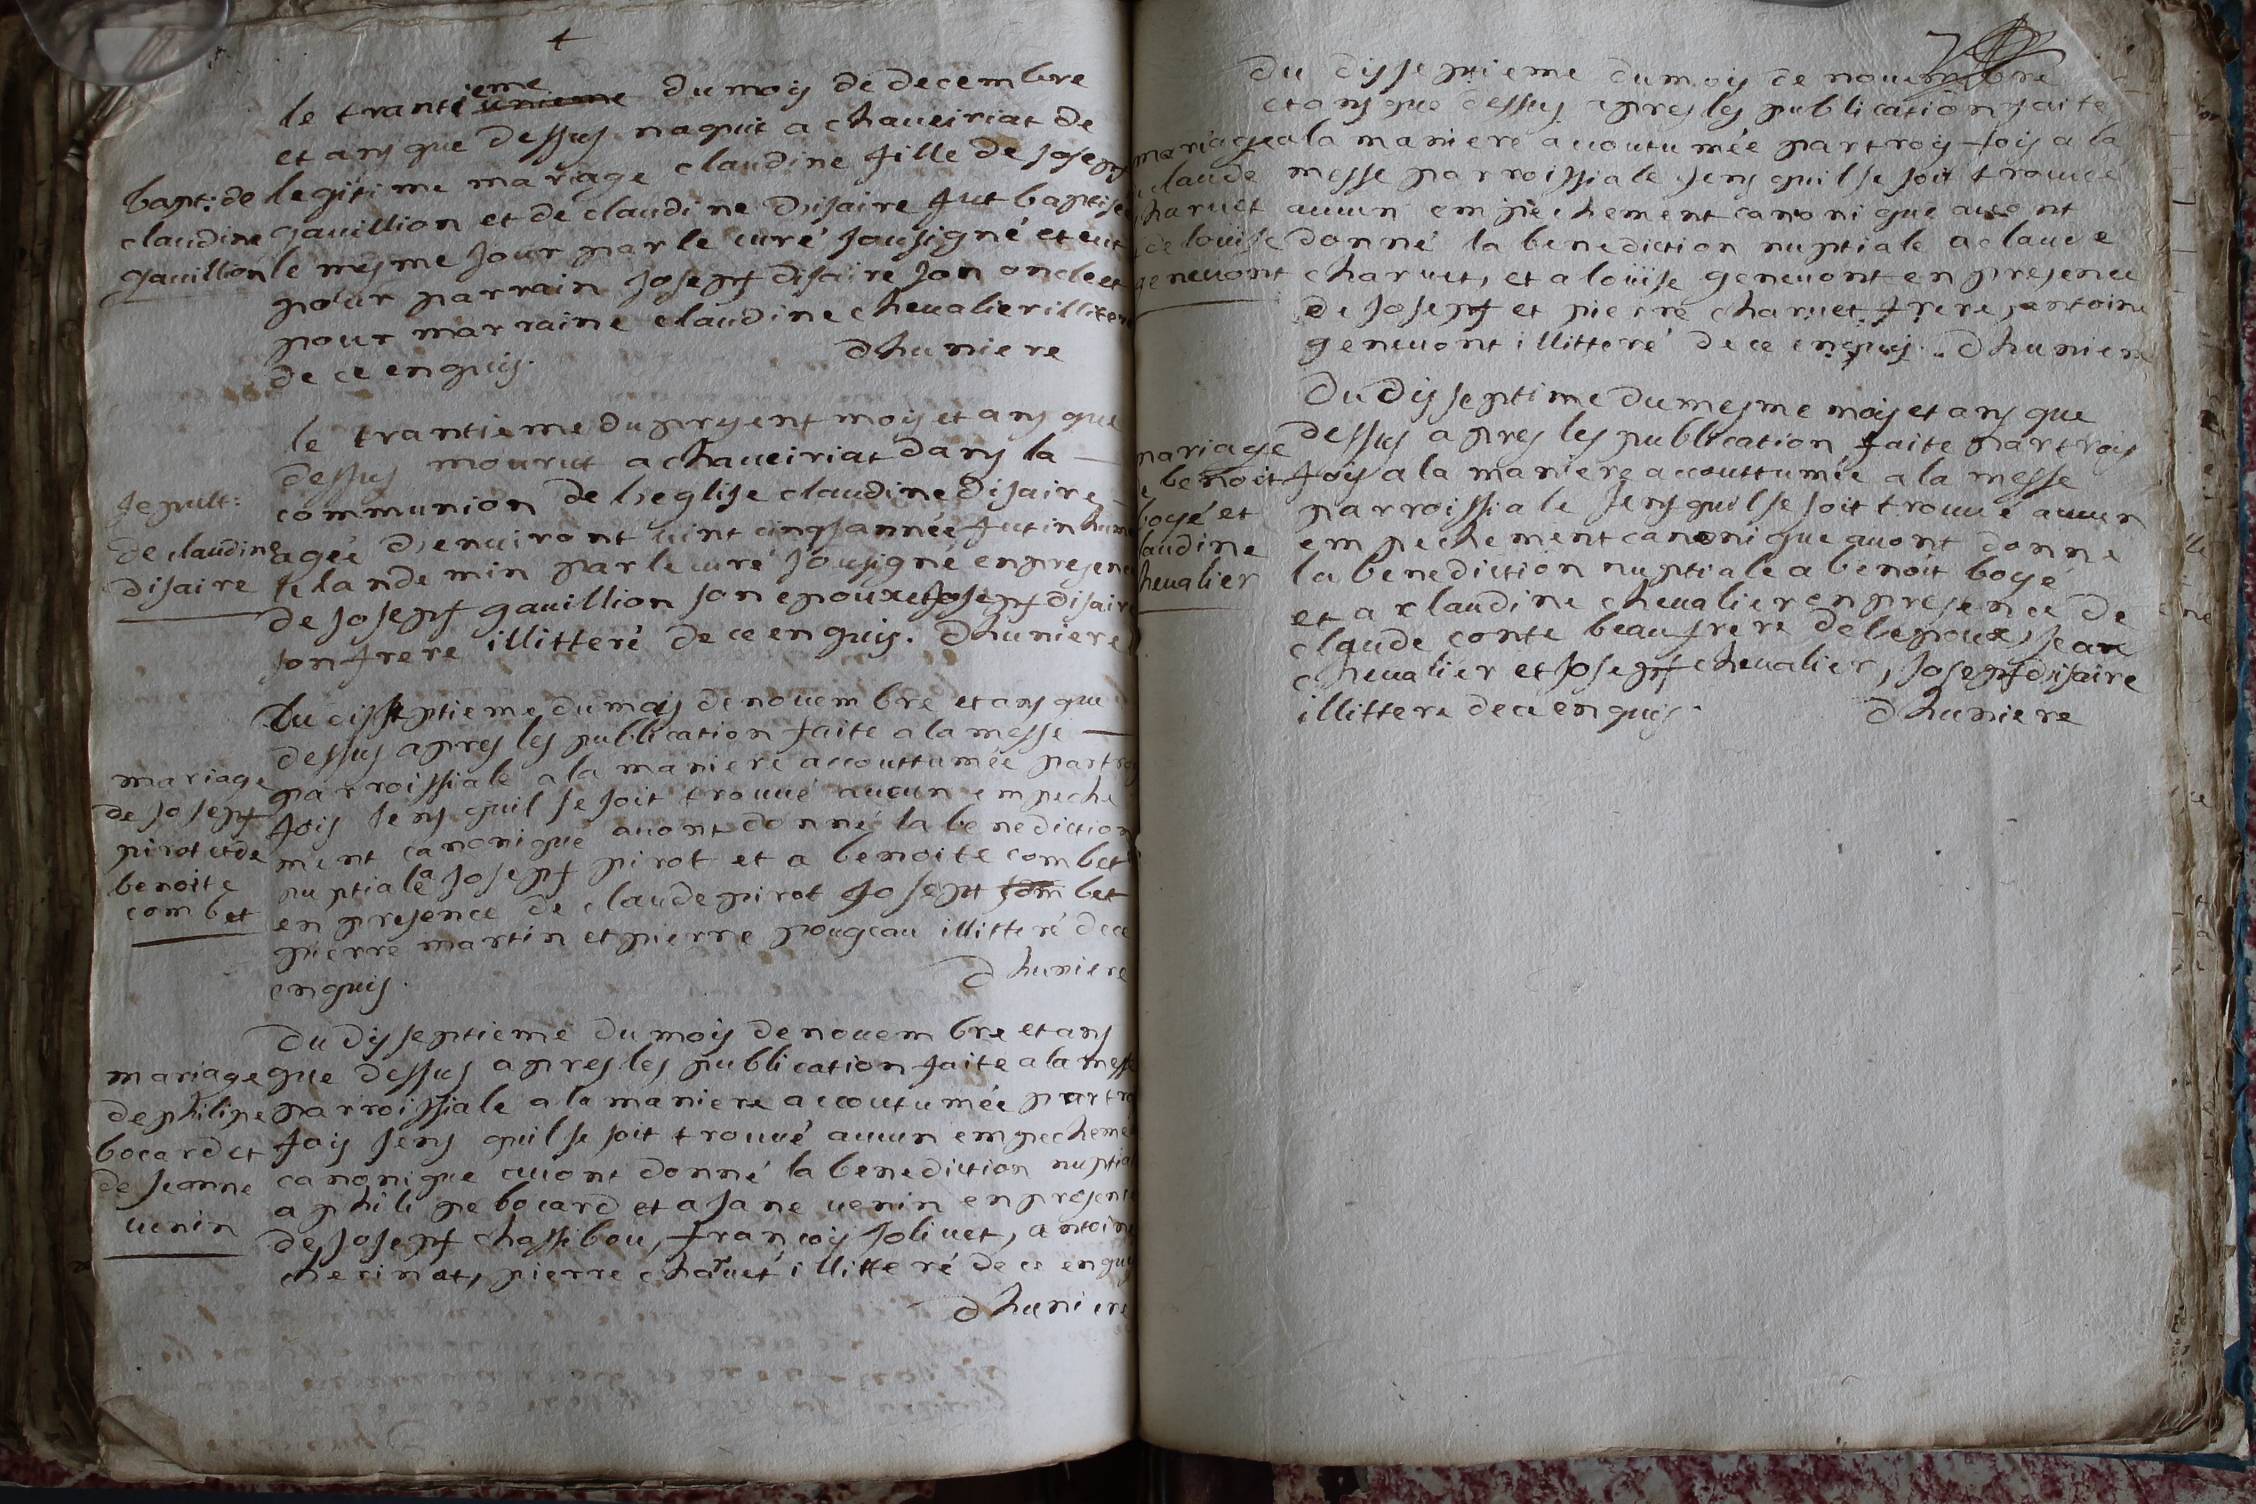 le trantieme du moys de decembre
et ans que dessus naquit a chaveiriat de
bapt: de legitime mariage claudine fille de Joseph
claudine gauillion et de claudine disaire fut baptisée
gauillion le mesme jour par le curé sousigné et eut
pour parrain Joseph disaire son oncle et
pour marraine claudine cheualier illiter
de ce enquis. dhuniere
le trantieme du presant moys et ans que
dessus mourut a chaveiriat dans la
sepult: communion de l'eglise claudine disaire
de claudine agée d'enuiront uint cinq année fut inhum
disaire le landemin par le curé sousigné en presen
de Joseph gauillion son epoux et Joseph disaire
son frere illitteré de ce enquis. dhuniere
du disseptieme du moys de nouembre et ans que
dessus apres les publication faite a la messe
mariage parroissiale a la maniere accouttumée par troy
de Joseph foys sens quil se soit trouué aucun empeche
pirot et de ment canonique auont donné la benediction
benoite nuptiale a Joseph pirot et a benoite combet
combet en presence de claude pirot Joseph combet
pierre martin et pierre pougeau illitteré de ce
enquis. dhuniere
du disseptieme du moys de nouembre et ans
mariage que dessus apres les publication faite a la messe
de philipe parroissiale a la maniere accoutumée par tro
bocard et foys sens quil se soit trouué aucun empecheme
de Jeanne canonique auont donné la benediction nuptial
uenin a philipe bocard et a Jane uenin en presence
de Joseph chassibou, francoys Joliuet, antoine
cherinat, pierre charuet illitteré de ce enquis
dhuniere
du disseptieme du moys de nouembre
et ans que dessus apres les publication faite
mariage a la maniere accoutumée par troys foys a la
claude messe parroissiale sens quil se soit trouué
charuet aucun empechement canonique auont
de louise donné la benediction nuptiale a claude
geneuont charuet, et a louise geneuont en presence
de Joseph et pierre charuet frere, antoine
geneuont illitteré de ce enquis. dhuniere
du disseptime du mesme moys et ans que
mariage dessus apres les publication faite par troys
benoit foys a la maniere accouttumée a la messe
boyé et parroissiale sens quil se soit trouué aucun
laudine empechement canonique auont donné
heualier la benediction nuptiale a benoit boyé
et a claudine cheualier en presence de
claude conte beaufrere de lepoux, Jean
cheualier et Joseph cheualier, Joseph disaire
illittere de ce enquis. dhuniere